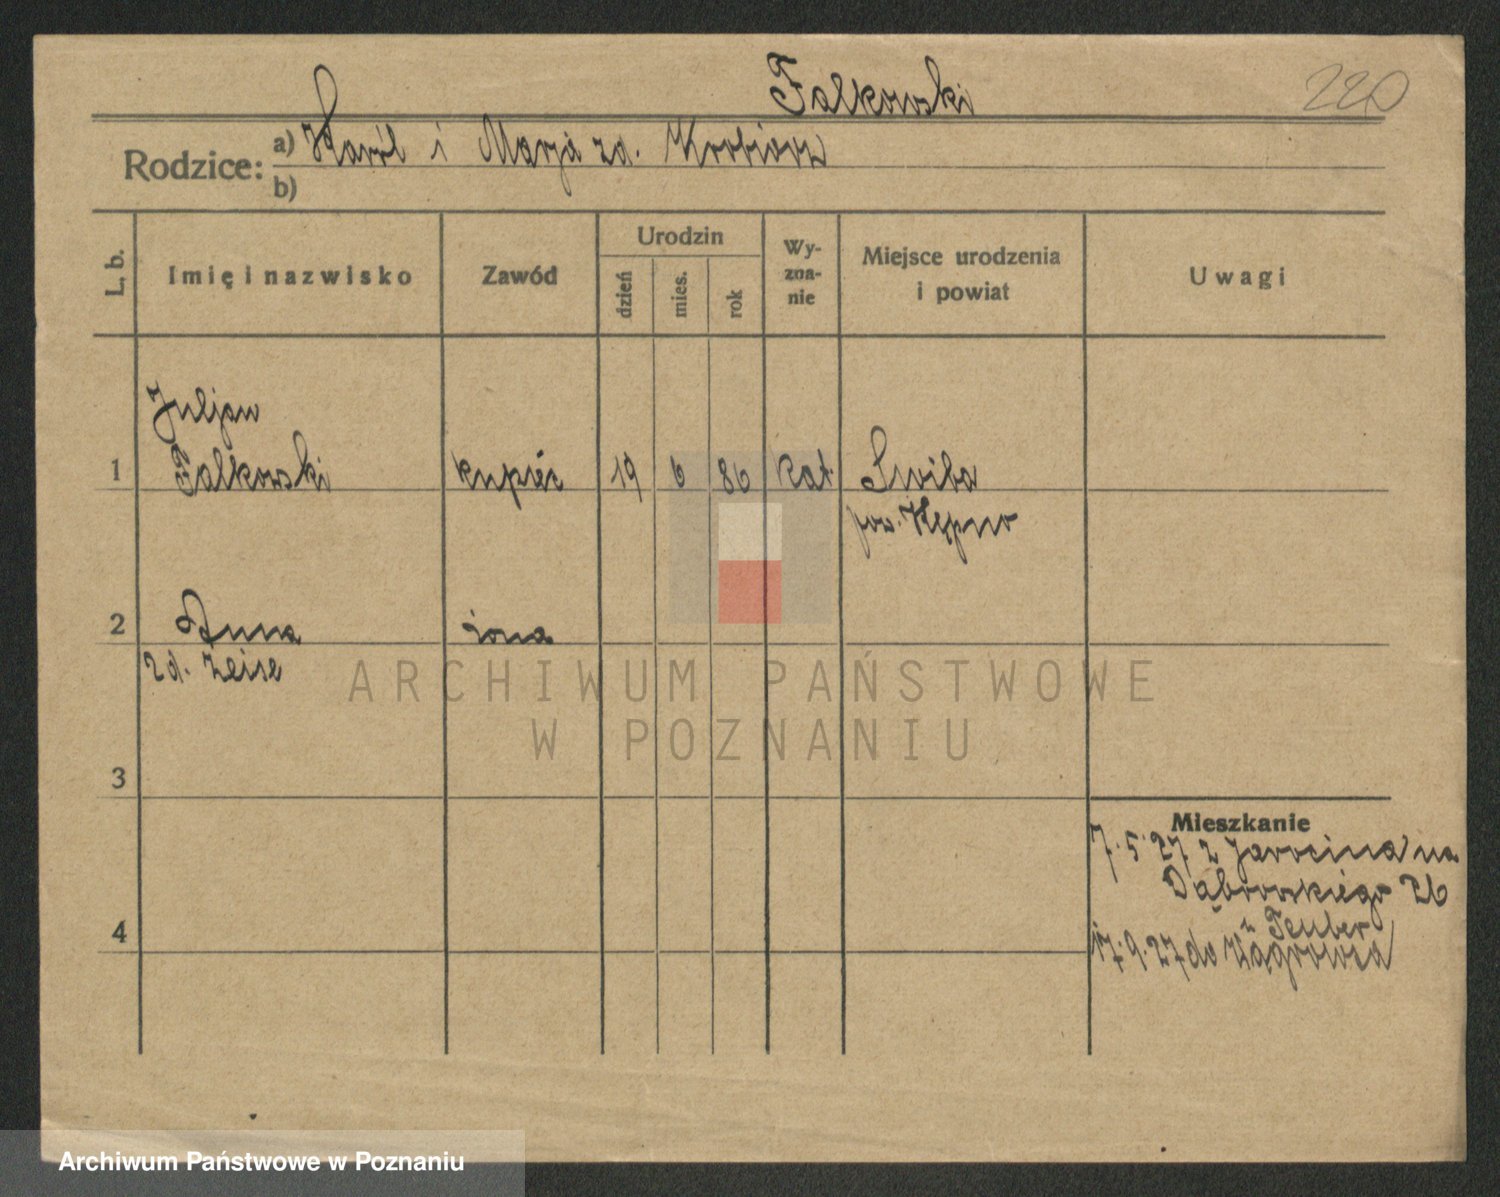 Falkowski
220
Rodzice: a) Karól i Marja zd.
b)
L. b.
Imię i nazwisko
Zawód
Urodzin
dzień
mies.
rok
Wy-
zna-
nie
Miejsce urodzenia
i powiat
Uwagi
Juljan
1 Falkowski kupiec 19 6 86 kat. Swiba
pow. Kępno
2 Anna żona
zd. Zeise
3
4
Mieszkanie
7.5.27 z Jarocina na
Dąbrowskiego 26
u Teuber
17.9.27 do
ARCHIWUM PAŃSTWOWE
W POZNANIU
Archiwum Państwowe w Poznaniu